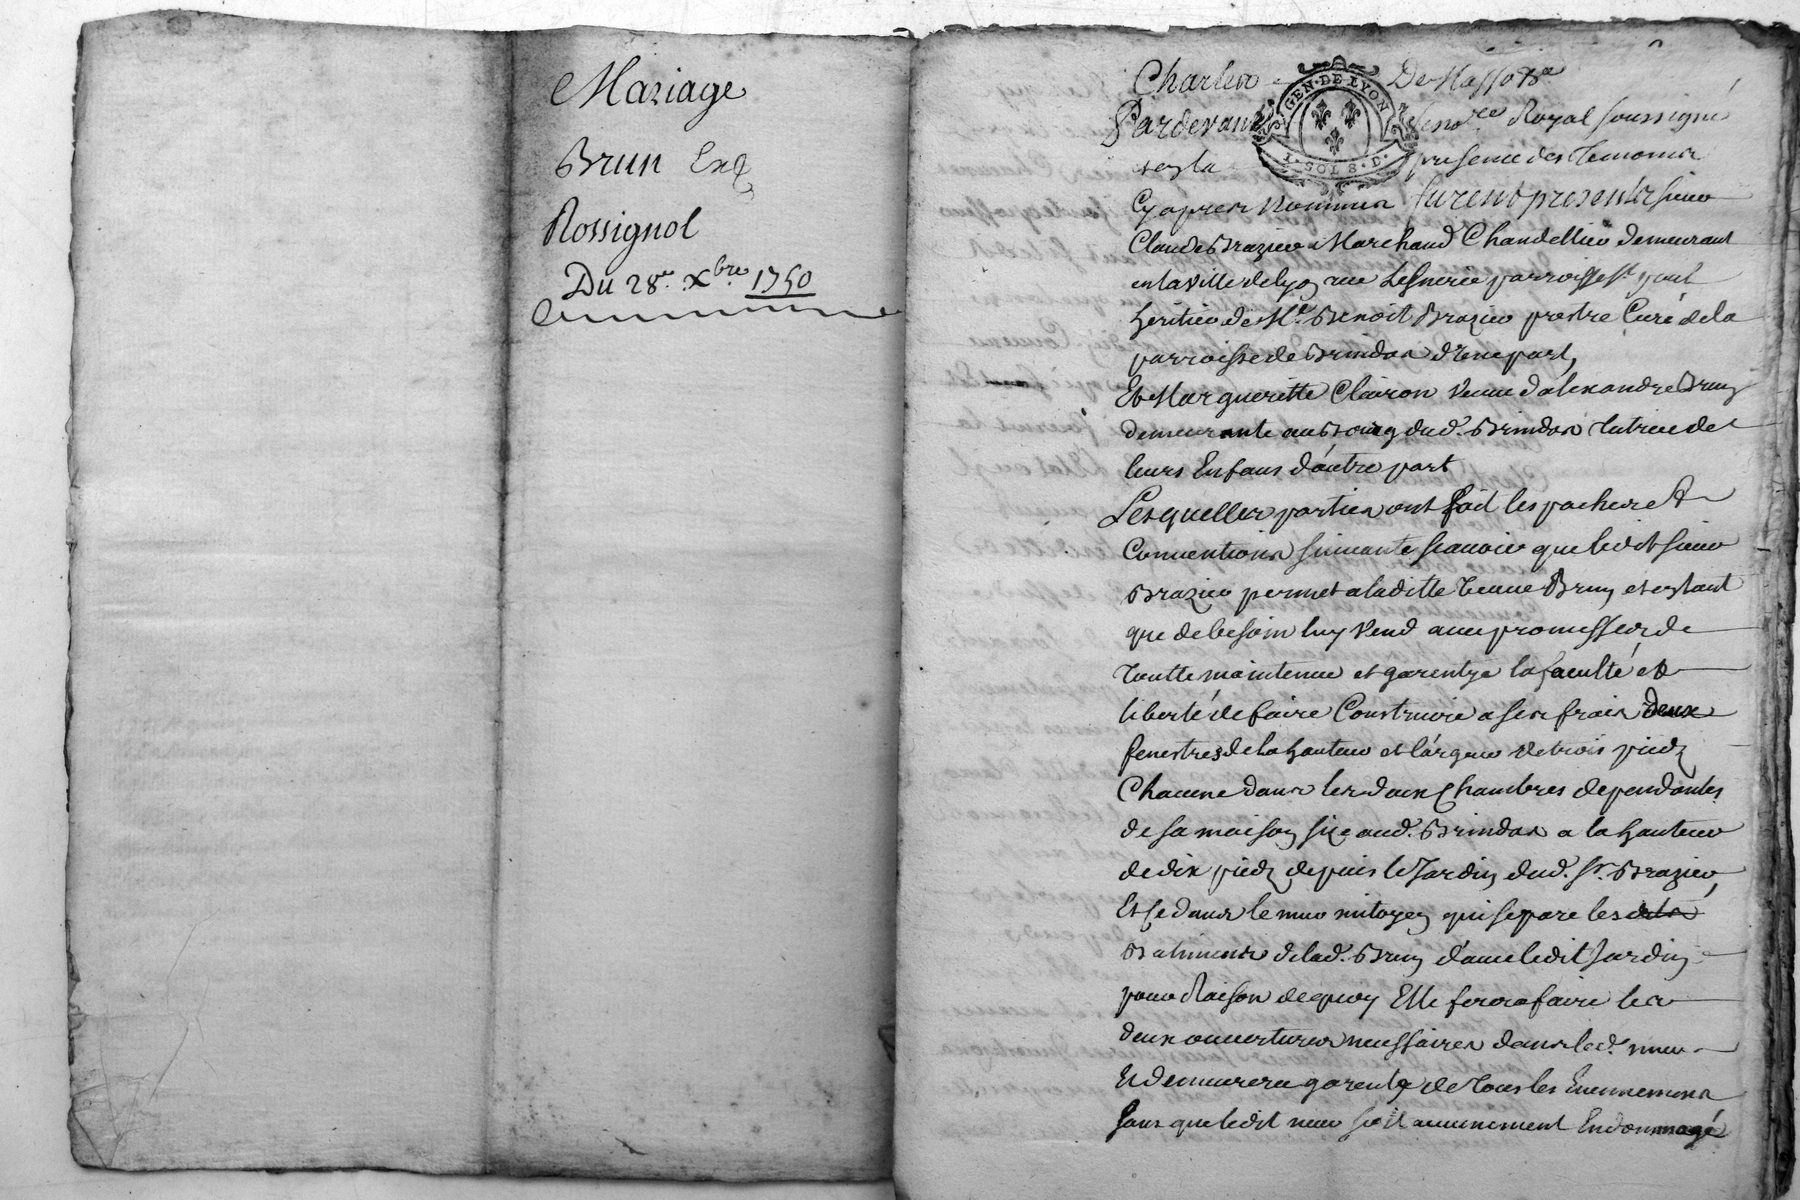 Mariage
Brun Et
Rossignol
Du 28e. Xbre. 1750
Charles De Masso
GEN·DE LYON
1·SOL 8·D·
Pardevant le nore Royal soussigné
et en la presence des temoins
Cy apres nommes furent presents sieur
Claude Brazier Marchand Chandellier demeurant
en la ville de Lyon rue parroisse St paul
heritier de Me Benoit Brazier prestre Curé de la
parroisse de Brindas d'une part,
Et Margueritte Clairon veuve d'alexandre Brun
demeurante au Bourg dud. Brindas tutrice de
leurs Enfans d'autre part
Lesquelles parties ont fait les paches et
Conventions suivante scauoir que ledit sieur
Brazier permet a laditte veuve Brun et en tant
que de besoin luy vend avec promesses de
toutte maintenue et garentye la faculté et
liberté de faire Construire a ses frais deux
fenestres de la hauteur et largeur de trois pieds
Chacune dans les deux Chambres dependantes
de sa maison size aud. Brindas a la hauteur
de dix pieds depuis le Jardin dud. Sr. Brazier,
Et ce dans le mur mitoyen qui separe les
Batiments de lad. Brun d'avec ledit Jardin
pour Raison de quoy Elle fera faire les
deux ouvertures necessaires dans led. mur
Et demeurera garente de tous les Evennemens
sans que ledit mur soit aucunement Endommagé